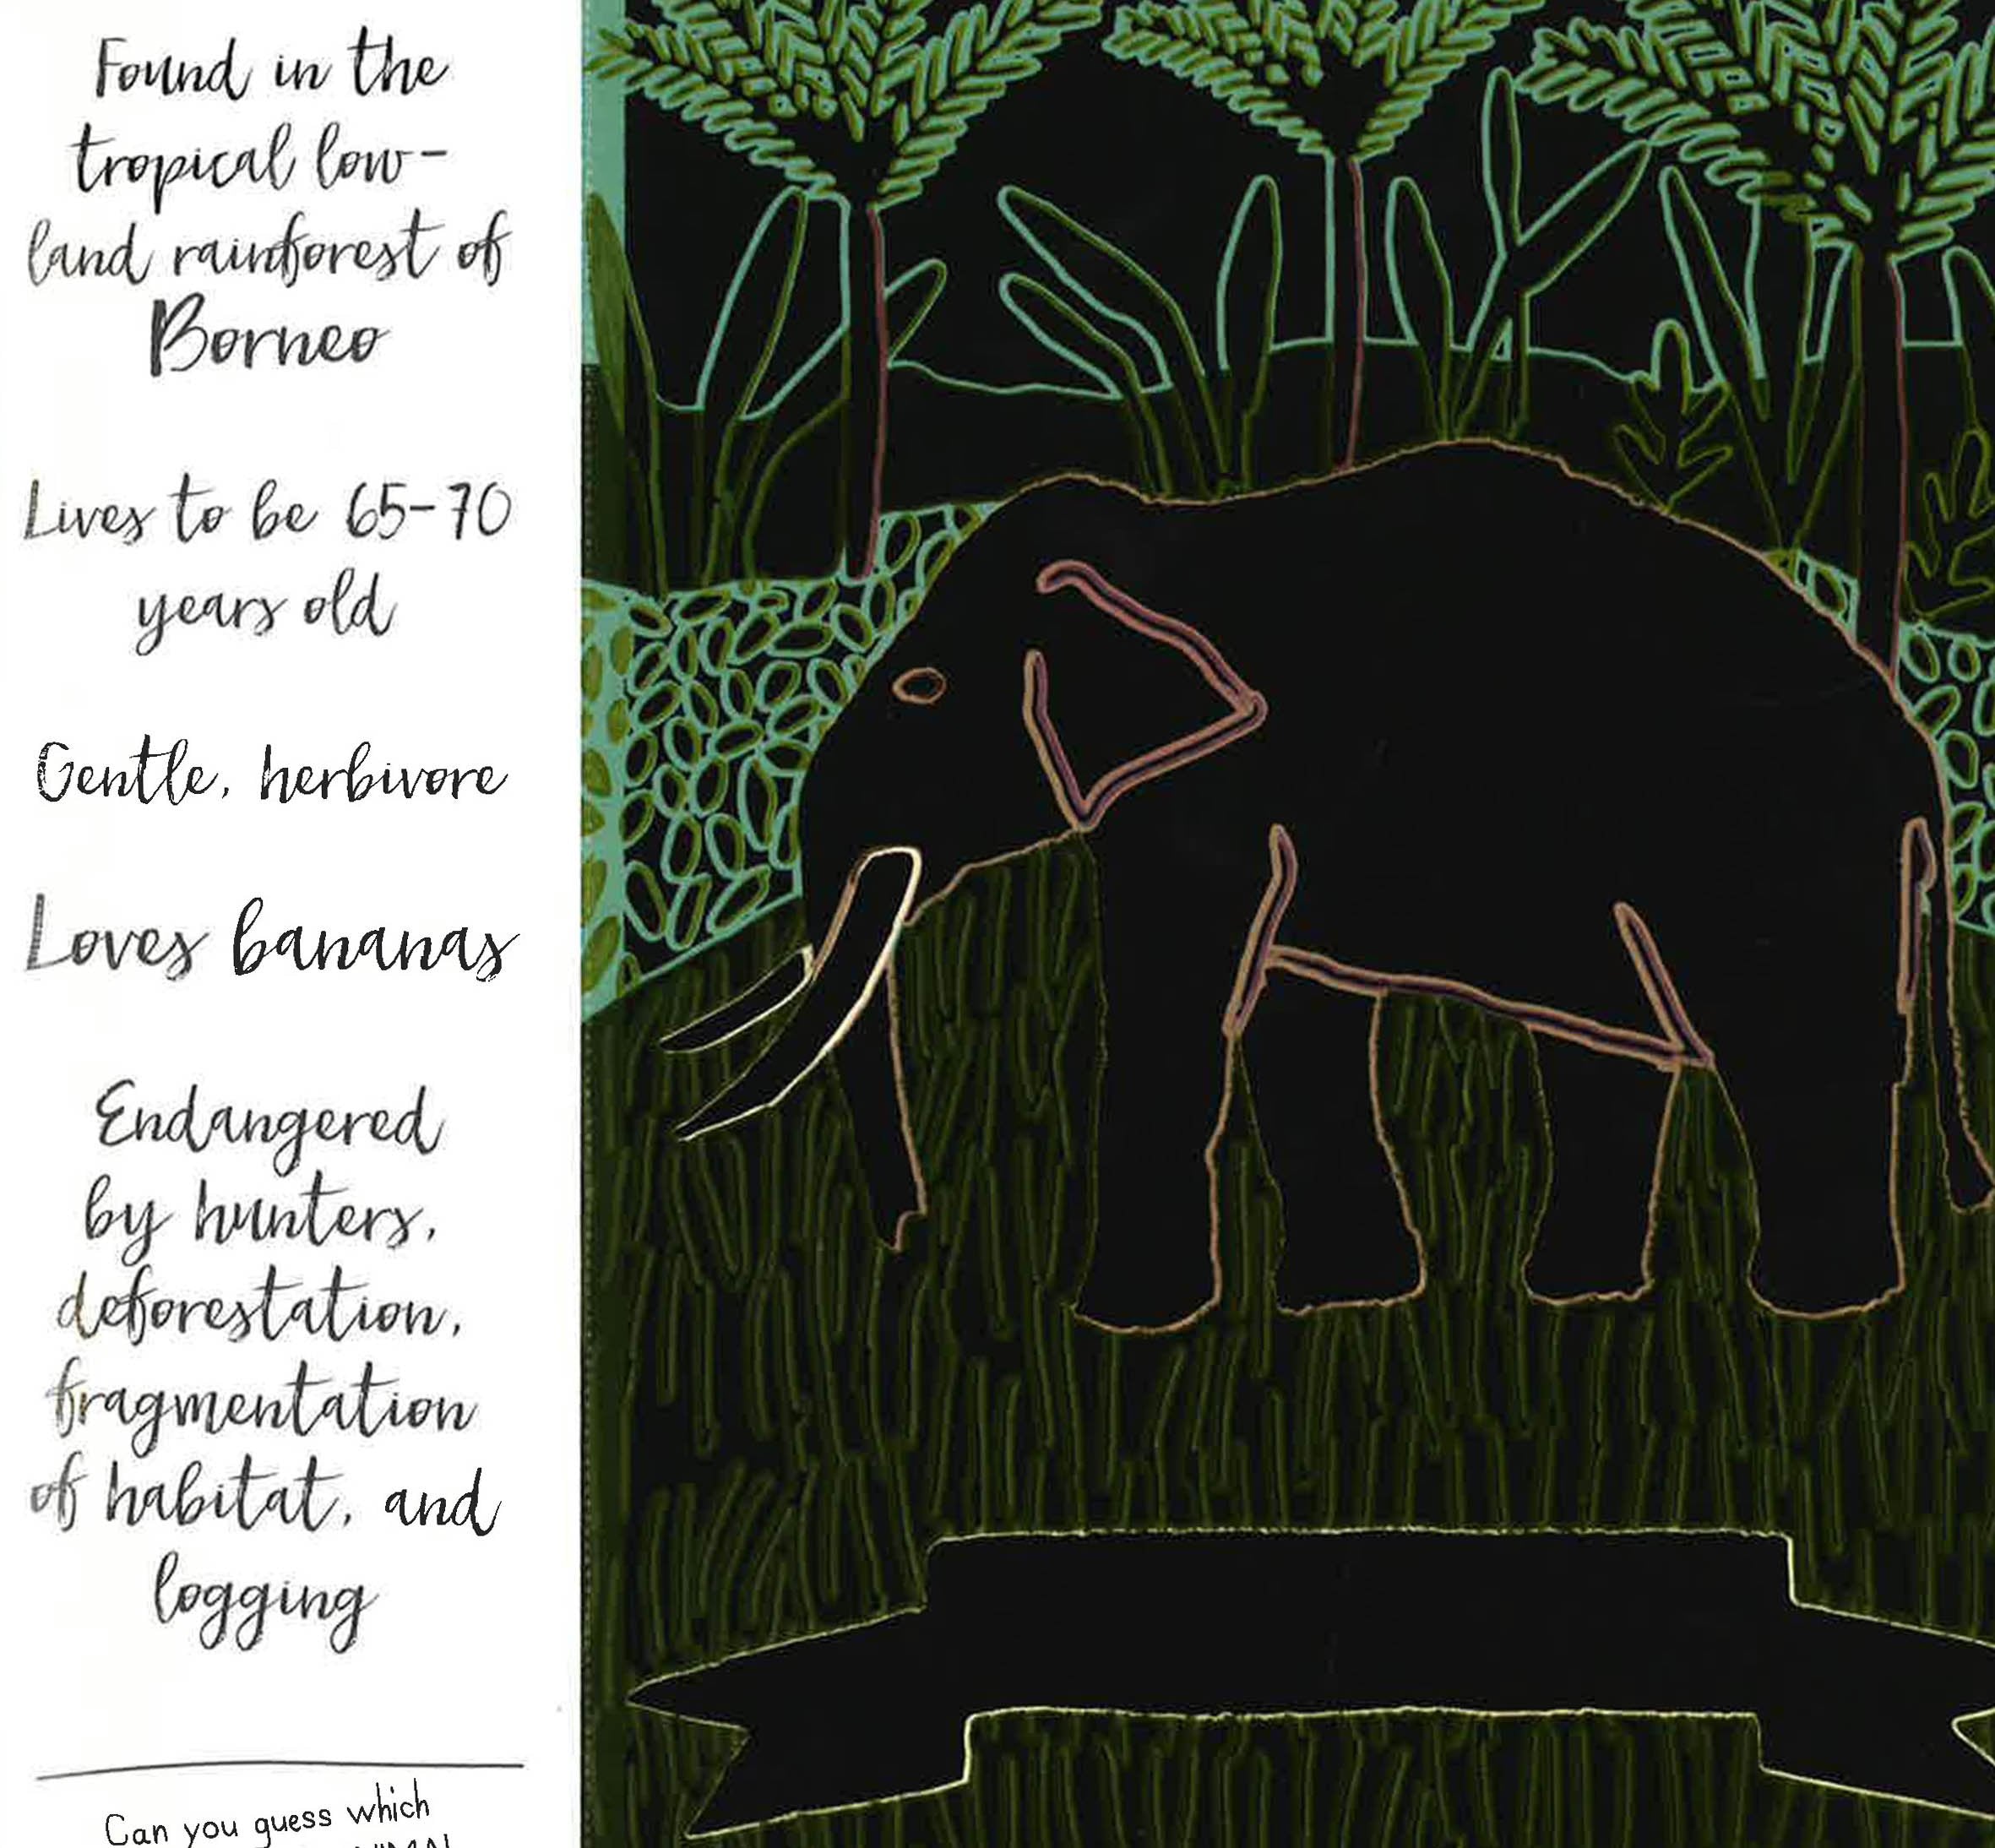 Found in the
tropical low-
land rainforest of
Borneo
Lives to be 65-70
years old
Gentle, herbivore
Loves bananas
Endangered
by hunters,
deforestation,
fragmentation
of habitat, and
logging
Can you guess which